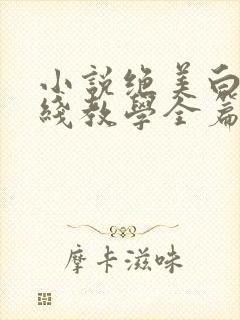 小說絕美白
綫教學全篇
摩卡滋味